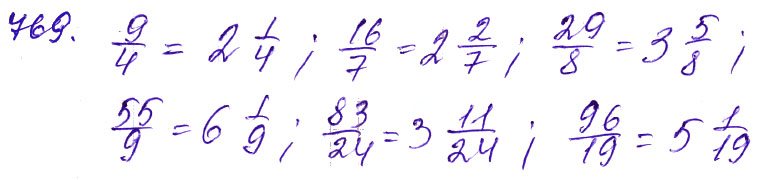 769. 9/4 = 2 1/4 ; 16/7 = 2 2/7 ; 29/8 = 3 5/8 ;
55/9 = 6 1/9 ; 83/24 = 3 11/24 ; 96/19 = 5 1/19